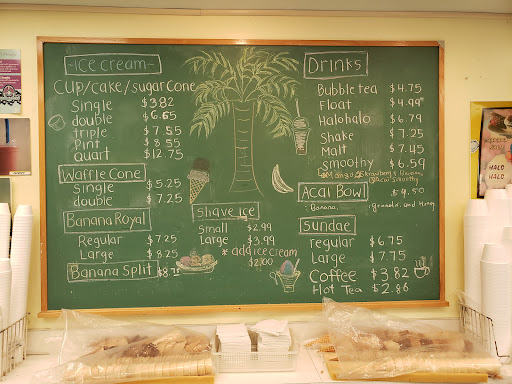 -Ice cream-
Cup/cake/sugar cone
Single $3.82
double $6.65
triple $7.55
Pint $8.55
quart $12.75
Waffle Cone
Single $5.25
double $7.25
Banana Royal
Regular $7.25
Large $8.25
Banana Split $8.75
shave ice
Small $2.99
Large $3.99
* add ice cream
$2.00
Drinks
Bubble tea $4.75
Float $4.99
Halohalo $6.79
Shake $7.25
Malt $7.45
smoothy $6.59
Acai Bowl $9.50
Banana, granola, and Honey
Sundae
regular $6.75
Large $7.75
Coffee $3.82
Hot Tea $2.86
HALO
HALO